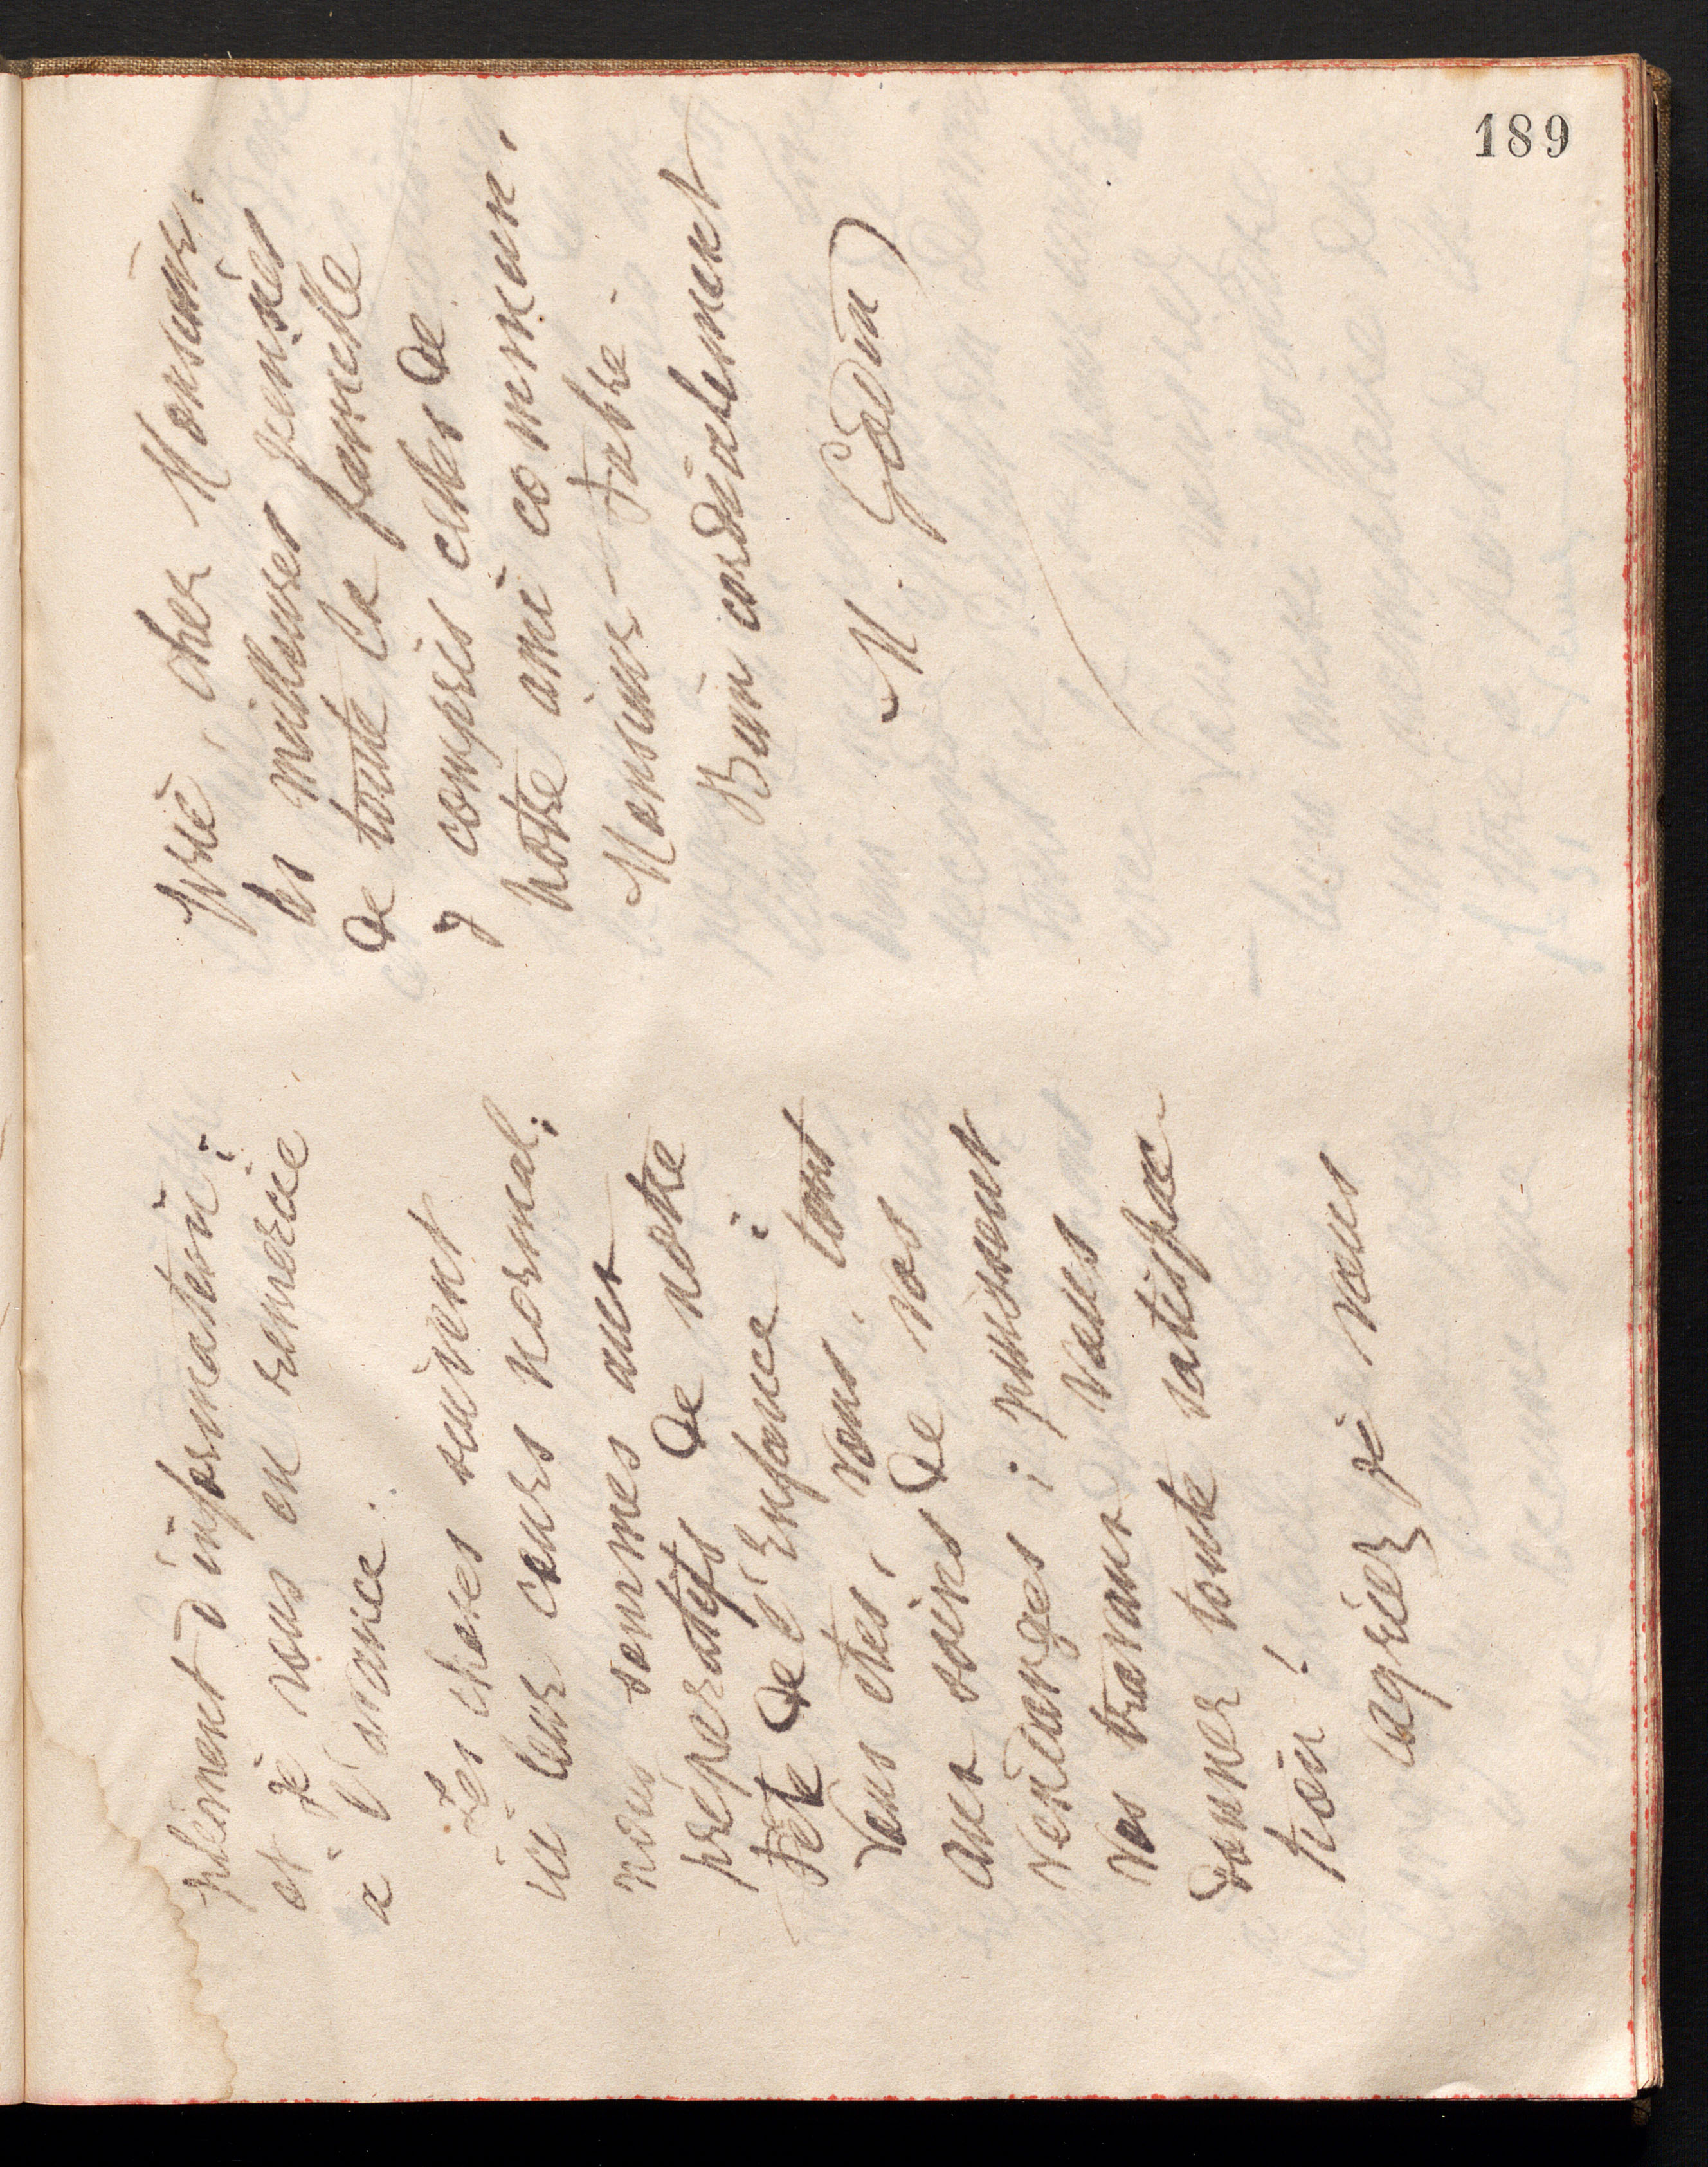 189
plément d'information;
et je vous en remercie
à l'avance.
Les choses suivent
ici leur cours normal;
nous sommes aux
préparatifs de notre
Fête de l'Enfance;
Vous êtes, vous, tout
aux soins de vos
vendanges; puissent
vos travaux vous
donner toute satisfac
tion!
Agréez je vous
prie, cher Monsieur,
les meilleures pensées
de toute la famille
y compris celles de
notre ami commun,
Monsieur Fabre
Bien cordialement
M. Godin